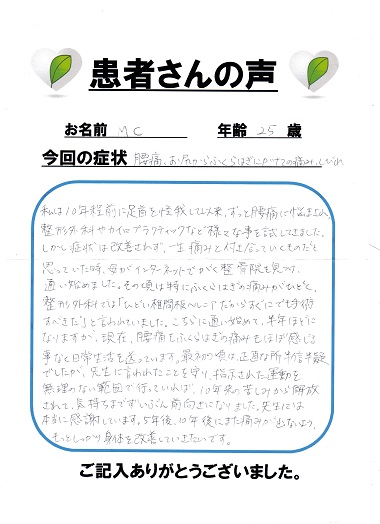 患者さんの声
お名前 MC 年齢 25 歳
今回の症状 腰痛、お尻からふくらはぎにかけての痛み、しびれ
私は10年程前に足首を怪我して以来、ずっと腰痛に悩まされ
整形外科やカイロプラクティックなど様々な事を試してきました。
しかし症状は改善されず、一生痛みと付き合っていくものだと
思っていた時、母がインターネットでがく整骨院を見つけ、
通い始めました。その頃は特にふくらはぎの痛みがひどく、
整形外科では「ひどい椎間板ヘルニアだからすぐにでも手術
すべきだ」と言われていました。こちらに通い始めて、半年ほどに
なりますが、現在、腰痛もふくらはぎの痛みもほぼ感じる
事なく日常生活を送っています。最初の頃は、正直な所半信半疑
でしたが、先生に言われたことを守り、指示された運動を
無理のない範囲で行っていれば、10年来の苦しみから解放
されて、気持ちまでずいぶん前向きになりました。先生には
本当に感謝しています。5年後、10年後にまた痛みが出ないよう、
もっとしっかり身体を改善していきたいです。
ご記入ありがとうございました。